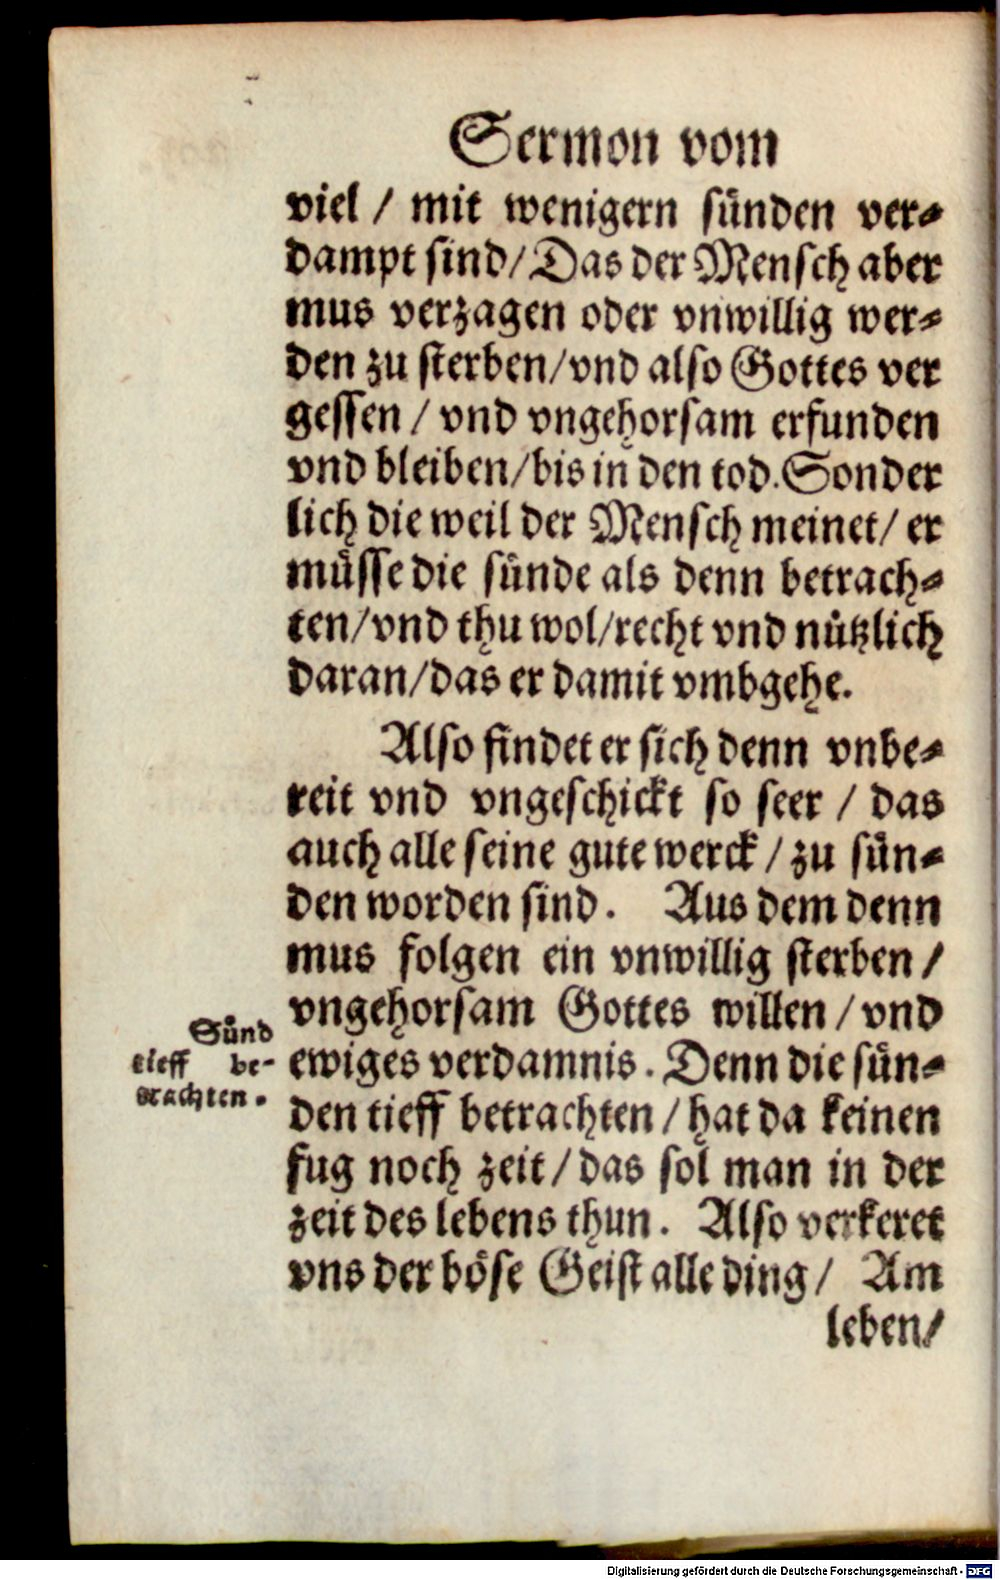 Sermon vom
viel / mit wenigern sünden ver-
dampt sind/ Das der Mensch aber
mus verzagen oder vnwillig wer-
den zu sterben/vnd also Gottes ver
gessen / vnd vngehorsam erfunden
vnd bleiben/bis in den tod. Sonder
lich die weil der Mensch meinet/ er
müsse die sünde als denn betrach-
ten/vnd thu wol/recht vnd nützlich
daran/das er damit vmbgehe.
Also findet er sich denn vnbe-
reit vnd vngeschickt so seer / das
auch alle seine gute werck / zu sün-
den worden sind. Aus dem denn
mus folgen ein vnwillig sterben /
vngehorsam Gottes willen / vnd
ewiges verdamnis. Denn die sün-
den tieff betrachten / hat da keinen
fug noch zeit / das sol man in der
zeit des lebens thun. Also verkeret
vns der böse Geist alle ding / Am
leben/
Sünd
tieff be-
trachten.
Digitalisierung gefördert durch die Deutsche Forschungsgemeinschaft - DFG